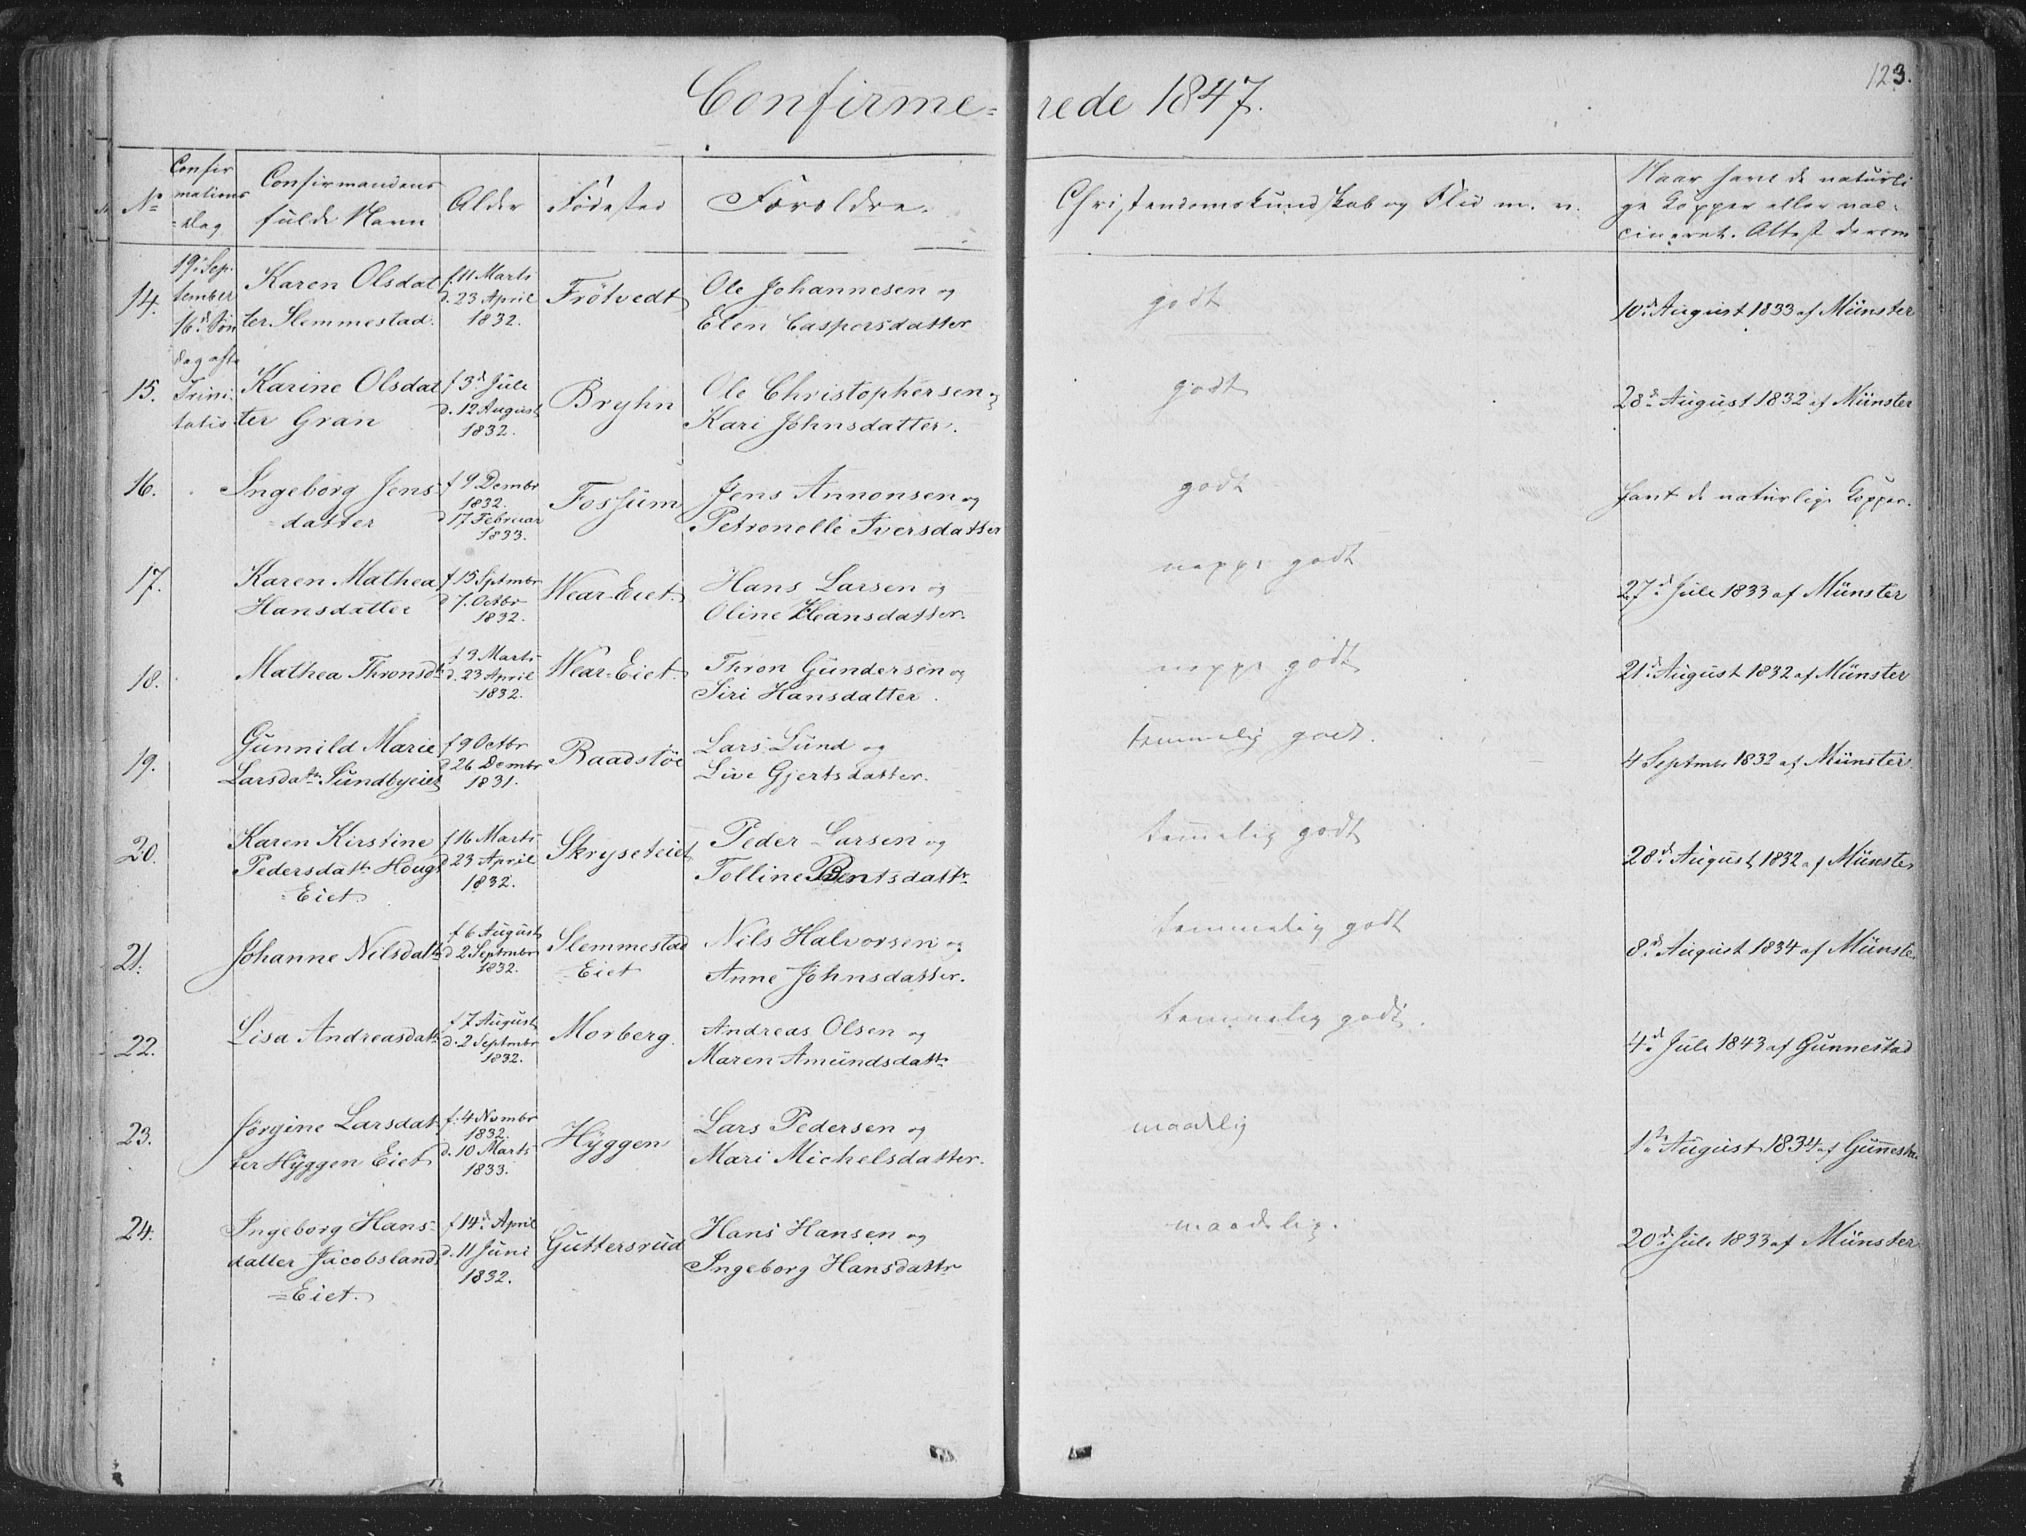 Confirme=rede 1847.
123.
No
Confir
mations
=dag
Confirmandens
fulde Navn
Alder
Fødested
Forældre.
Christendomskundskab og Flid m. v.
Naar havt de naturli
ge Kopper eller vac-
cineret. Attest derom
14.
19. Sep-
tember
16d. Søn
dag efter
Trini-
tatis
Karen Olsdat
ter Slemmestad.
f. 11 Marts
d. 23 April
1832.
Frötvedt
Ole Johannesen og
Elen Caspersdatter
godt
10d. August 1833 af Münster
15.
Karine Olsdat
ter Gran
f 3d. Juli
d. 12 August
1832.
Bryhn
Ole Christophersen og
Kari Johnsdatter.
godt
28d. August 1832 af Münster
16.
Ingeborg Jens
=datter
f 9 Dembr
1832.
d 17 Februar
1833.
Fossum
Jens Annonsen og
Petronelle Iversdatter
godt
havt de naturlige Kopper.
17.
Karen Mathea
Hansdatter
f 15 Septmbr
d 7. Octbr
1832.
Wear-Eiet.
Hans Larsen og
Oline Hansdatter.
neppe godt
27d. Juli 1833 af Münster
18.
Mathea Thronsdr
f 3 Marts
d. 23 April
1832.
Wear-Eiet.
Thron Gundersen og
Siri Hansdatter.
neppe godt
21d. August 1832 af Münster
19.
Gunnild Marie
Larsdatr Sundbyeiet
f 9 Octbr
d 26 Dembr
1831.
Raadstöe
Lars Lund og
Live Gjertsdatter.
temmelig godt.
4 Septmbr 1832 af Münster.
20.
Karen Kirstine
Pedersdatr Hougs
=Eiet
f 16 Marts
d 23 April
1832.
Skryseteiet
Peder Larsen og
Tolline Bentsdatr
temelig godt
28d. August 1832 af Münster
21.
Johanne Nilsdatr
f 6 August
d 2 Septmbr
1832.
Slemmestad
=Eiet
Nils Halvorsen og
Anne Johnsdatter.
temmelig godt
8d. August 1834 af Münster
22.
Lisa Andreasdatr
f 7 August
d. 2 Septmbr
1832.
Morberg.
Andreas Olsen og
Maren Amundsdatr
temmelig godt.
4d. Juli 1843 af Gunnestad
23.
Jörgine Larsdat-
ter Hÿggen Eiet
f. 4 Novmbr
1832.
d. 10 Marts
1833.
Hÿggen
Lars Pedersen og
Mari Michelsdatter.
maadelig
1te August 1834 af Gunnesta
24.
Ingeborg Hans-
datter Jacobslands
=Eiet.
f 14d. April
d. 11 Juni
1832.
Guttersrud
Hans Hansen og
Ingeborg Hansdattr
maadelig.
20d. Juli 1833 af Münster